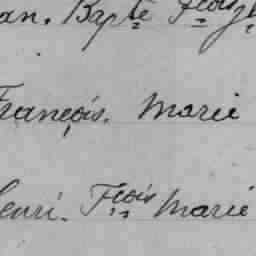 an. Bapte Fcois
François. Marie
enri. Fcois Marie